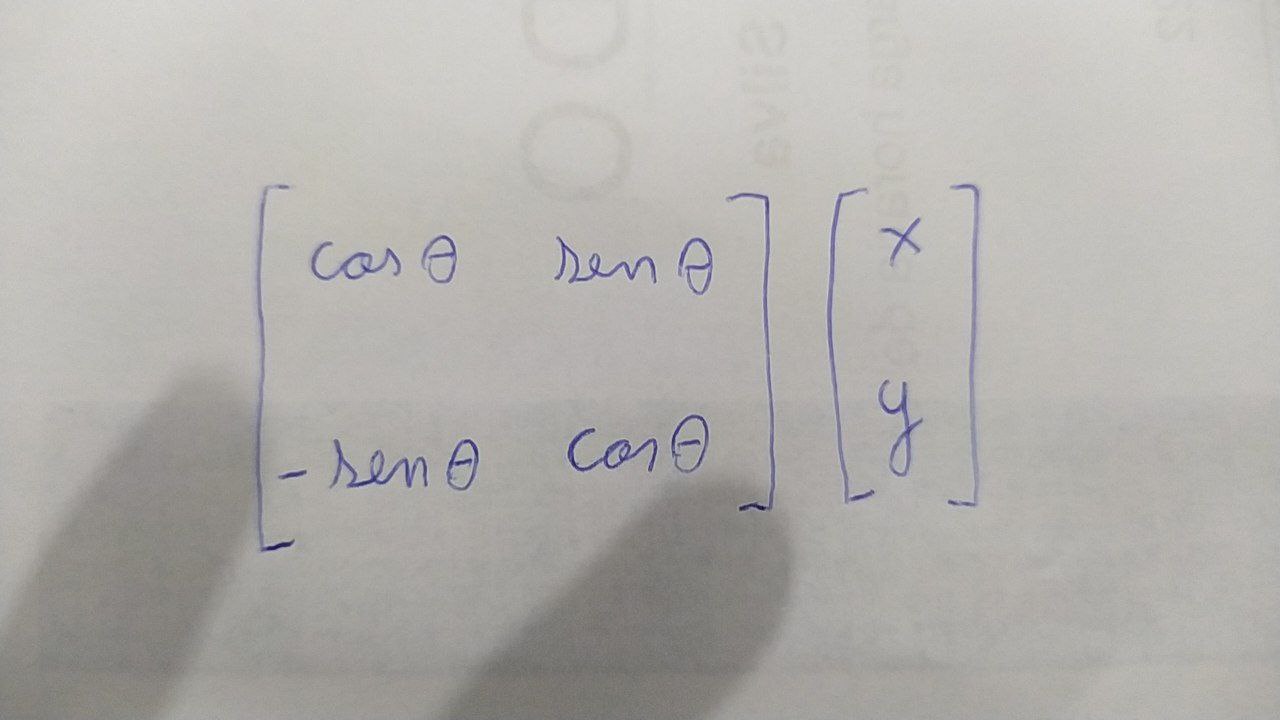 cos θ sen θ x
- sen θ cos θ y